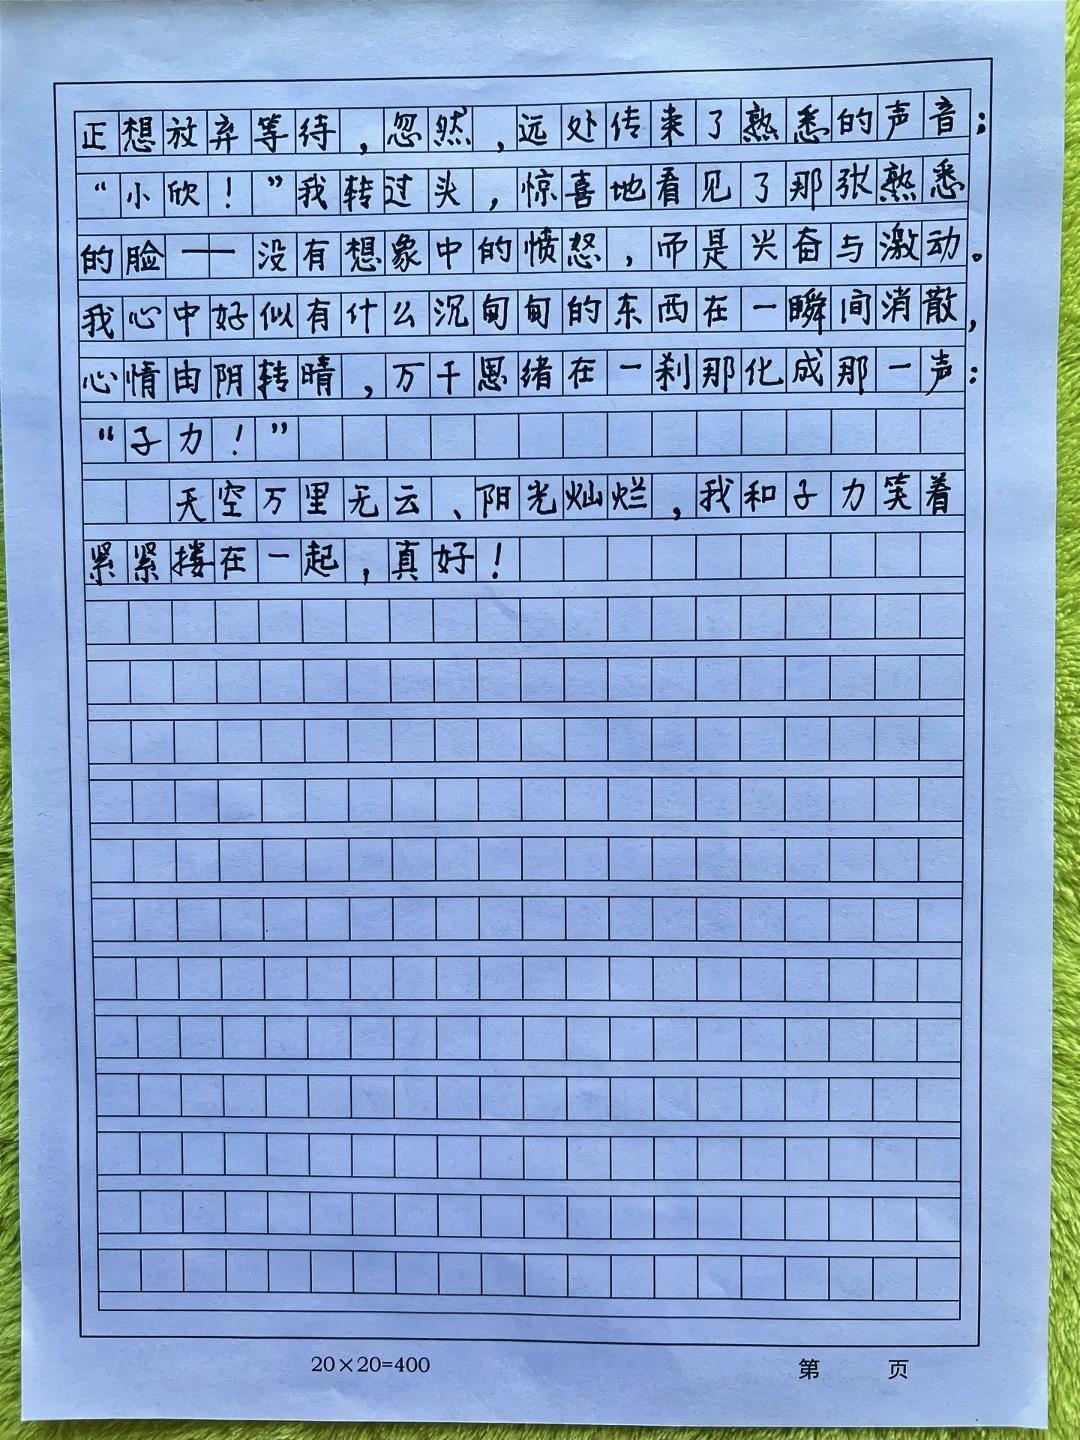 正想放弃等待，忽然，远处传来了熟悉的声音；
“小欣！”我转过头，惊喜地看见了那张熟悉
的脸——没有想象中的愤怒，而是兴奋与激动。
我心中好似有什么沉甸甸的东西在一瞬间消散，
心情由阴转晴，万千思绪在一刹那化成那一声：
“子力！”
天空万里无云、阳光灿烂，我和子力笑着
紧紧搂在一起，真好！
20×20=400
第 页